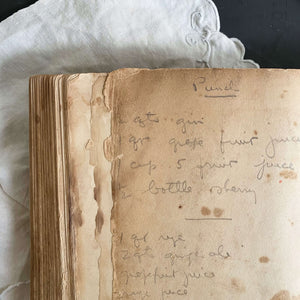 Punch
qts gin
qr grape fruit juice
cup 5 fruit juice
bottle sherry
qt rye
qts ging ale
grapefruit juice
juice